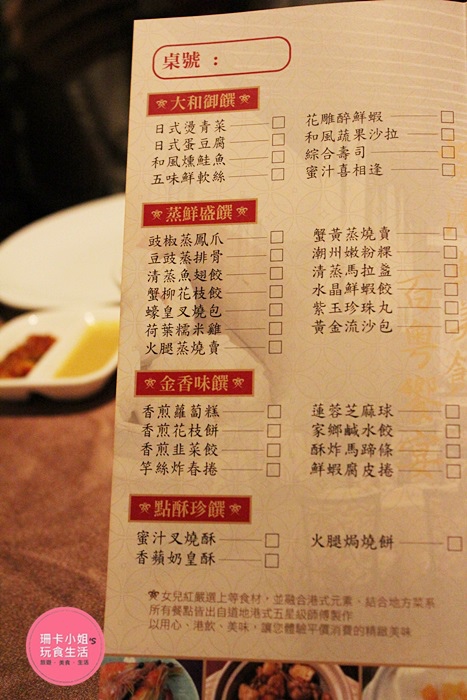 桌號：
大和御饌
日式燙青菜
日式蛋豆腐
和風燻鮭魚
五味鮮軟絲
花雕醉鮮蝦
和風蔬果沙拉
綜合壽司
蜜汁喜相逢
蒸鮮盛饌
豉椒蒸鳳爪
豆豉蒸排骨
清蒸魚翅餃
蟹柳花枝餃
蠔皇叉燒包
荷葉糯米雞
火腿蒸燒賣
蟹黃蒸燒賣
潮州嫩粉粿
清蒸馬拉盏
水晶鮮蝦餃
紫玉珍珠丸
黃金流沙包
金香味饌
香煎蘿蔔糕
香煎花枝餅
香煎韭菜餃
芋絲炸春捲
蓮蓉芝麻球
家鄉鹹水餃
酥炸馬蹄條
鮮蝦腐皮捲
點酥珍饌
蜜汁叉燒酥
香蘋奶皇酥
火腿焗燒餅
女兒紅嚴選上等食材，並融合港式元素、結合地方菜系
所有餐點皆出自道地港式五星級師傅製作
以用心、港飲、美味，讓您體驗平價消費的精緻美味
珊卡小姐's
玩食生活
旅遊·美食·生活